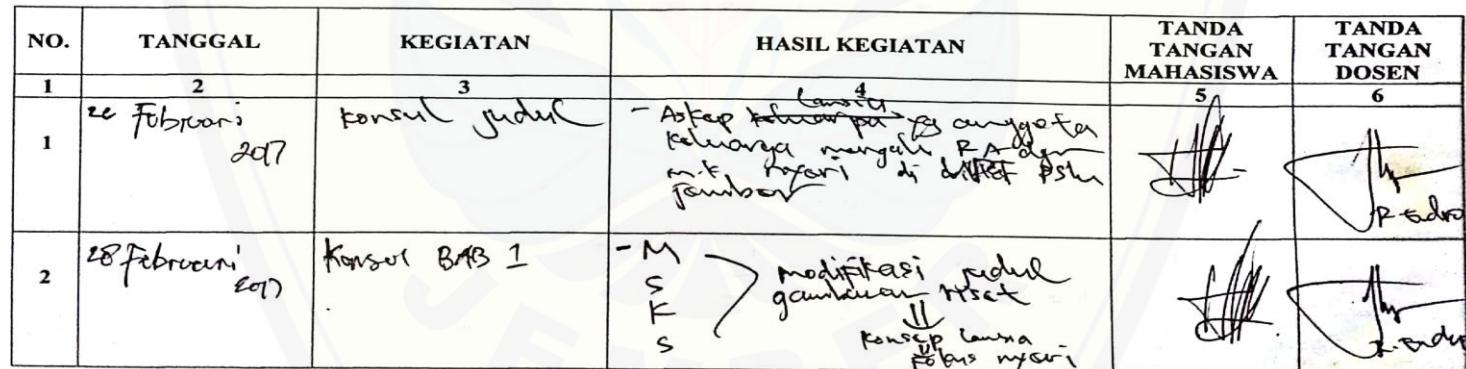 NO. TANGGAL KEGIATAN HASIL KEGIATAN TANDA TANGAN MAHASISWA TANDA TANGAN DOSEN
1 2 3 4 5 6
1 Februari 2017 konsul judul - Askep keluarga lansia yg anggota
keluarga mengali RA dgn
m.k nyeri di PSLU
jember
R. Endro
2 28 Februari 2017 Konsul BAB 1 - M
S
K
S
modifikasi judul
gambaran riset
konsep lansia
fokus nyeri
R. Endro
JEMBER